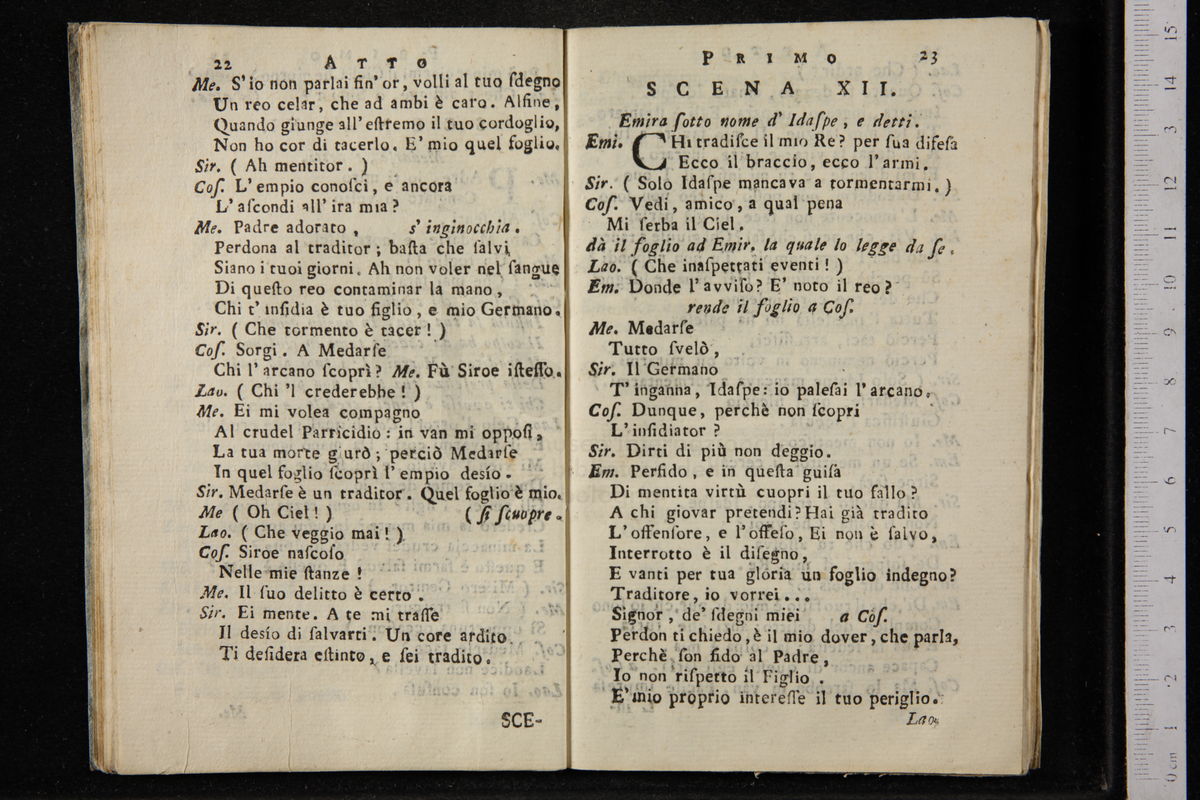 22 ATTO
Me. S' io non parlai fin' or, volli al tuo ſdegno
Un reo celar, che ad ambi è caro. Alfine,
Quando giunge all' eſtremo il tuo cordoglio,
Non ho cor di tacerlo. E' mio quel foglio.
Sir. ( Ah mentitor. )
Coſ. L' empio conoſci, e ancora
L' aſcondi all' ira mia?
Me. Padre adorato, s' inginocchia.
Perdona al traditor; baſta che ſalvi
Siano i tuoi giorni. Ah non voler nel ſangue
Di queſto reo contaminar la mano,
Chi t' inſidia è tuo figlio, e mio Germano.
Sir. ( Che tormento è tacer! )
Coſ. Sorgi. A Medarſe
Chi l' arcano ſcoprì? Me. Fù Siroe iſteſſo.
Lao. ( Chi 'l crederebbe! )
Me. Ei mi volea compagno
Al crudel Parricidio: in van mi oppoſi,
La tua morte giurò; perciò Medarſe
In quel foglio ſcoprì l' empio desío.
Sir. Medarſe è un traditor. Quel foglio è mio.
Me ( Oh Ciel! ) ( ſi ſcuopre.
Lao. ( Che veggio mai! )
Coſ. Siroe naſcoſo
Nelle mie ſtanze!
Me. Il ſuo delitto è certo.
Sir. Ei mente. A te mi traſſe
Il desío di ſalvarti. Un core ardito
Ti deſidera eſtinto, e ſei tradito.
SCE-
PRIMO 23
SCENA XII.
Emira ſotto nome d' Idaſpe, e detti.
Emi. CHi tradiſce il mio Re? per ſua difeſa
Ecco il braccio, ecco l' armi.
Sir. ( Solo Idaſpe mancava a tormentarmi. )
Coſ. Vedi, amico, a qual pena
Mi ſerba il Ciel.
dà il foglio ad Emir. la quale lo legge da ſe.
Lao. ( Che inaſpettati eventi! )
Em. Donde l' avviſo? E' noto il reo?
rende il foglio a Coſ.
Me. Medarſe
Tutto ſvelò,
Sir. Il Germano
T' inganna, Idaſpe: io paleſai l' arcano.
Coſ. Dunque, perchè non ſcopri
L' inſidiator?
Sir. Dirti di più non deggio.
Em. Perfido, e in queſta guiſa
Di mentita virtù cuopri il tuo fallo?
A chi giovar pretendi? Hai già tradito
L' offenſore, e l' offeſo, Ei non è ſalvo,
Interrotto è il diſegno,
E vanti per tua gloria un foglio indegno?
Traditore, io vorrei...
Signor, de' ſdegni miei a Coſ.
Perdon ti chiedo, è il mio dover, che parla,
Perchè ſon fido al Padre,
Io non riſpetto il Figlio.
E' mio proprio intereſſe il tuo periglio.
Lao.